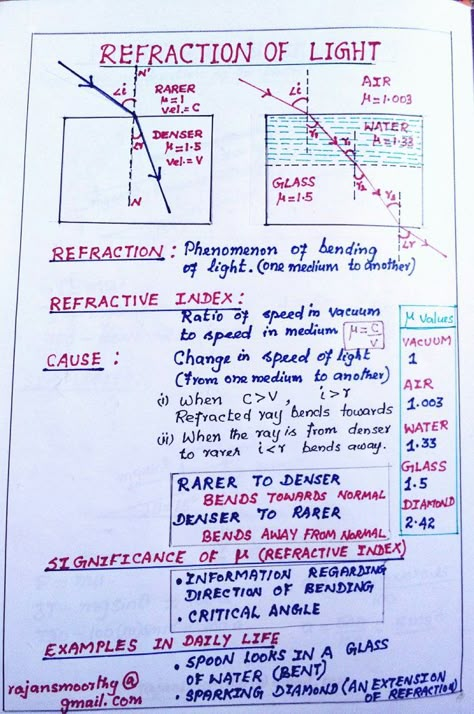 REFRACTION OF LIGHT
N'
∠i
RARER
μ=1
vel.=C
DENSER
μ=1.5
vel.=V
∠r
N
∠i
AIR
μ=1.003
WATER
μ=1.33
r₁
r₁
r₂
GLASS
μ=1.5
r₂
∠r
REFRACTION : Phenomenon of bending
of light. (one medium to another)
REFRACTIVE INDEX :
Ratio of speed in vacuum
to speed in medium μ=C/V
CAUSE : Change in speed of light
(from one medium to another)
(i) When C>V, i>r
Refracted ray bends towards
(ii) When the ray is from denser
to rarer i<r bends away.
μ Values
VACUUM
1
AIR
1.003
WATER
1.33
GLASS
1.5
DIAMOND
2.42
RARER TO DENSER
BENDS TOWARDS NORMAL
DENSER TO RARER
BENDS AWAY FROM NORMAL
SIGNIFICANCE OF μ (REFRACTIVE INDEX)
• INFORMATION REGARDING
DIRECTION OF BENDING
• CRITICAL ANGLE
EXAMPLES IN DAILY LIFE
• SPOON LOOKS IN A GLASS
OF WATER (BENT)
• SPARKING DIAMOND (AN EXTENSION
OF REFRACTION)
rajansmoorthy@
gmail.com